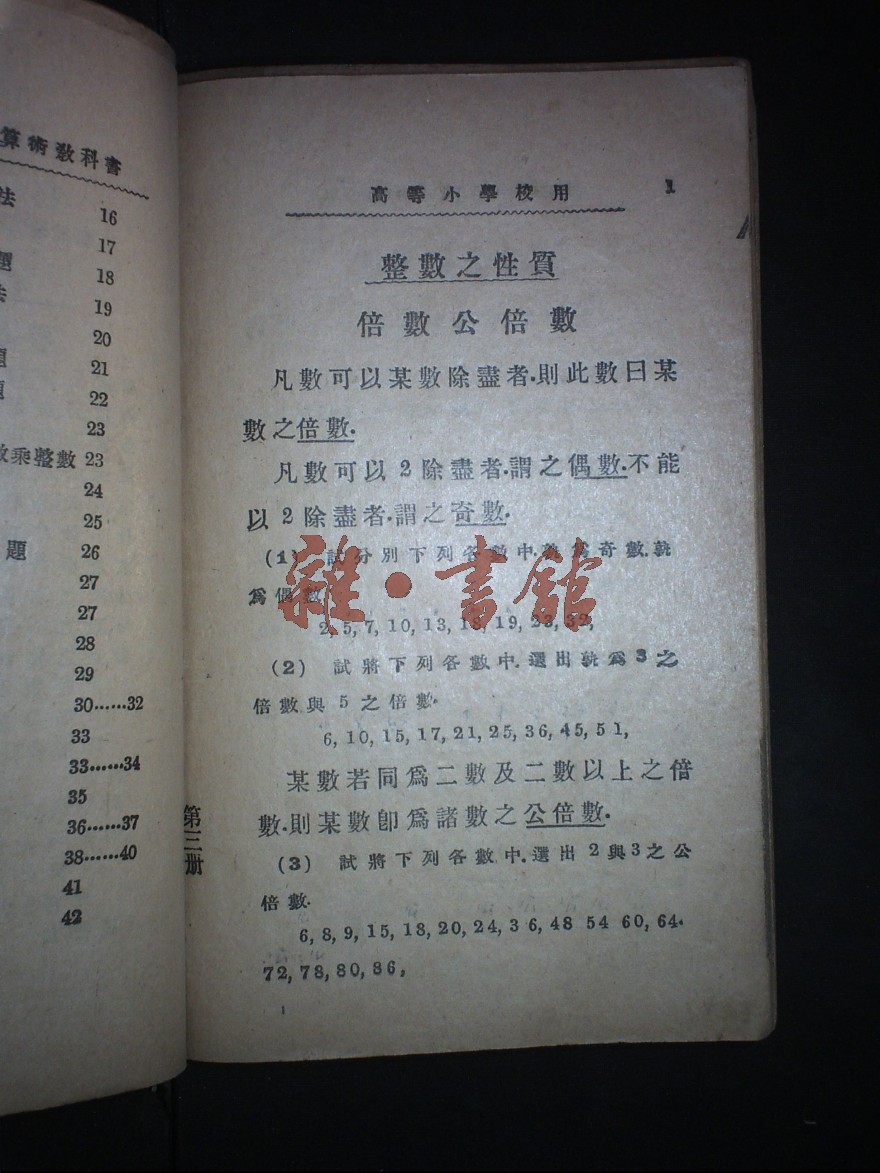 算術教科書
法 16
17
題 18
法 19
20
題 21
題 22
23
數乘整數 23
24
25
題 26
27
27
28
29
30……32
33
33……34
35
36……37
38……40
41
42
第三册
高等小學校用 1
整數之性質
倍數公倍數
凡數可以某數除盡者.則此數曰某
數之倍數.
凡數可以2除盡者.謂之偶數.不能
以2除盡者.謂之奇數.
(1) 試分別下列各數中.孰爲奇數.孰
爲偶數
2,5,7,10,13,18,19,23,32,
(2) 試將下列各數中.選出孰爲3之
倍數與5之倍數.
6,10,15,17,21,25,36,45,51,
某數若同爲二數及二數以上之倍
數.則某數卽爲諸數之公倍數.
(3) 試將下列各數中.選出2與3之公
倍數.
6,8,9,15,18,20,24,36,48 54 60,64.
72,78,80,86,
1
雜·書館